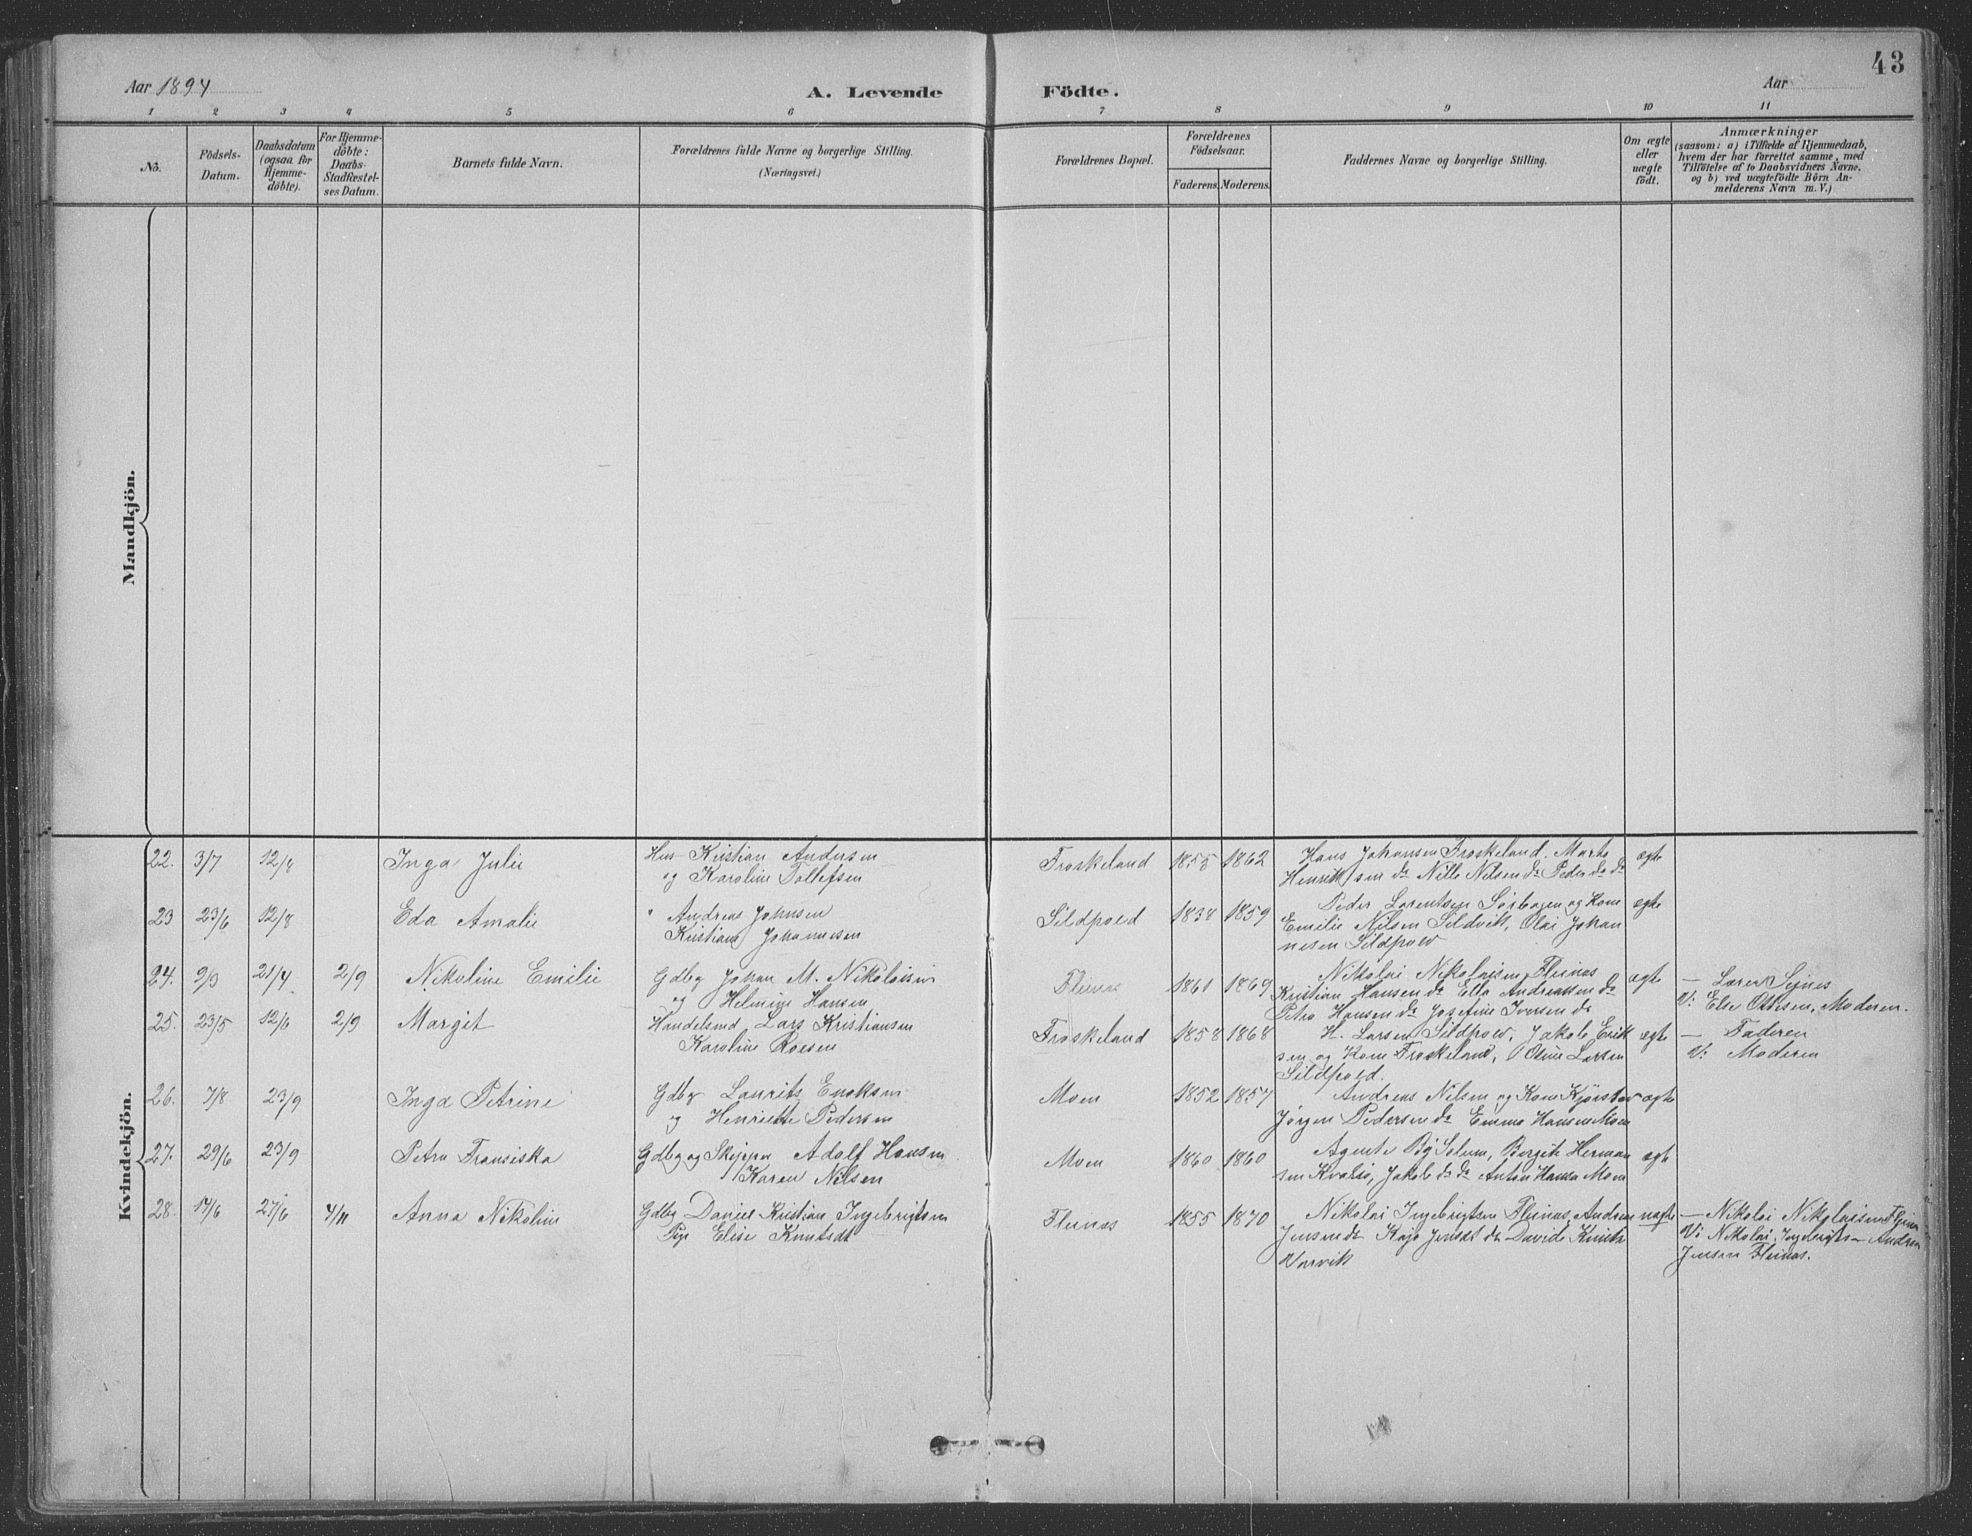 43
Aar 1894
A. Levende Födte.
Aar
1 2 3 4 5 6 7 8 9 10 11
No.
Födsels-
Datum.
Daabsdatum
(ogsaa for
Hjemme-
döbte).
For Hjemme-
döbte:
Daabs-
Stadfæstel-
ses Datum.
Barnets fulde Navn.
Forældrenes fulde Navne og borgerlige Stilling.
(Næringsvei.)
Forældrenes Bopæl.
Forældrenes
Födselsaar.
Faderens. Moderens.
Faddernes Navne og borgerlige Stilling.
Om ægte
eller
uægte
födt.
Anmærkninger
(saasom: a) i Tilfælde af Hjemmedaab,
hvem der har forrettet samme, med
Tilföielse af to Daabsvidners Navne,
og b) ved uægtefödte Börn An-
melderens Navn m. V.)
Mandkjön.
Kvindekjön.
22. 3/7 12/8 Inga Julie
Hus Kristian Andersen
og Karoline Tollefsen
Froskeland 1855 1862
Hans Johansen Froskeland. Marta
Henriksen do Nille Nilsen do Peder do do
ægte
23 23/6 12/8 Eda Amalie
" Andreas Johnsen
Kristiane Johannesen
Sildpoed 1834 1859
Peder Lorentsen Sørbogen og Kone
Emilie Nilsen Sildvik, Olai Johan
nesen Sildpoed
ægte
24. 9/3 21/4 2/9 Nikoline Emilie
Gdbg Johan M. Nikolaisen
og Helmine Hansen
Fleines 1861 1869
Nikolai Nikolaisen Fleines
Kristian Hansen do Ella Andreassen do
Petra Hansen do Josefine Iversen do
ægte
— Lærer Seines
V: Else Ottesen, Moderen.
25. 23/5 12/6 2/9 Margit
Handelsmd Lars Kristiansen
Karoline Roesen
Froskeland 1858 1868
H. Larsen Sildpoed, Jakob Erik
sen og Kone Froskeland, Oline Larsen
Sildpoed.
ægte
— Faderen
V: Moderen
26. 7/8 23/9 Inga Petrine
Gdbg Laurits Enoksen
og Henriette Pedersen
Moen 1852 1857
Andreas Nilsen og Kone
Jørgen Pedersen do Emma Hansen Moen
ægte
27. 29/6 23/9 Petra Fransiska
Gdbg og Skipper Adolf Hansen
Karen Nilsen
Moen 1860 1860
Agente By Solum, Bergite Herman
sen Kvalsø, Jakob do do Anton Hansen Moen
ægte
28. 14/6 27/6 4/11 Anna Nikoline
Gdbg Daniel Kristian Ingebrigtsen
Pige Elise Knutsdt
Fleines 1855 1870
Nikolai Ingebrigtsen Fleines, Andreas
Jensen do Kaja Jensdt do Davide Knuts
Vorvik
uægte
— Nikolai Nikolaisen Fleines
V: Nikolai Ingebrigtsen Andreas
Jensen Fleines.